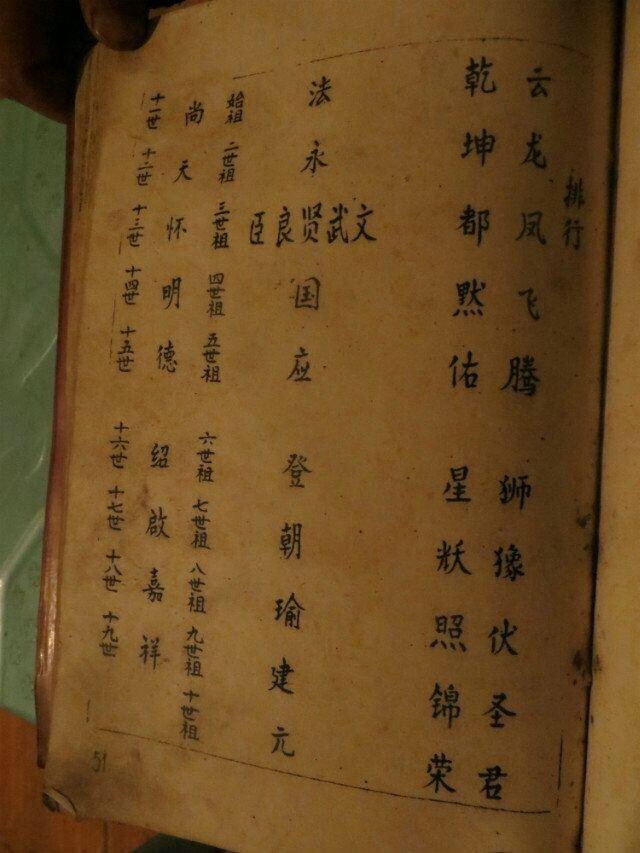 排行
云龙凤飞腾 狮 伏圣君
乾坤都默佑 星 照锦荣
法永
文武贤良臣
国应 登朝瑜建元
始祖 二世祖 三世祖 四世祖 五世祖 六世祖 七世祖 八世祖 九世祖 十世祖
尚天怀明德 绍啟嘉祥
十一世 十二世 十三世 十四世 十五世 十六世 十七世 十八世 十九世
51